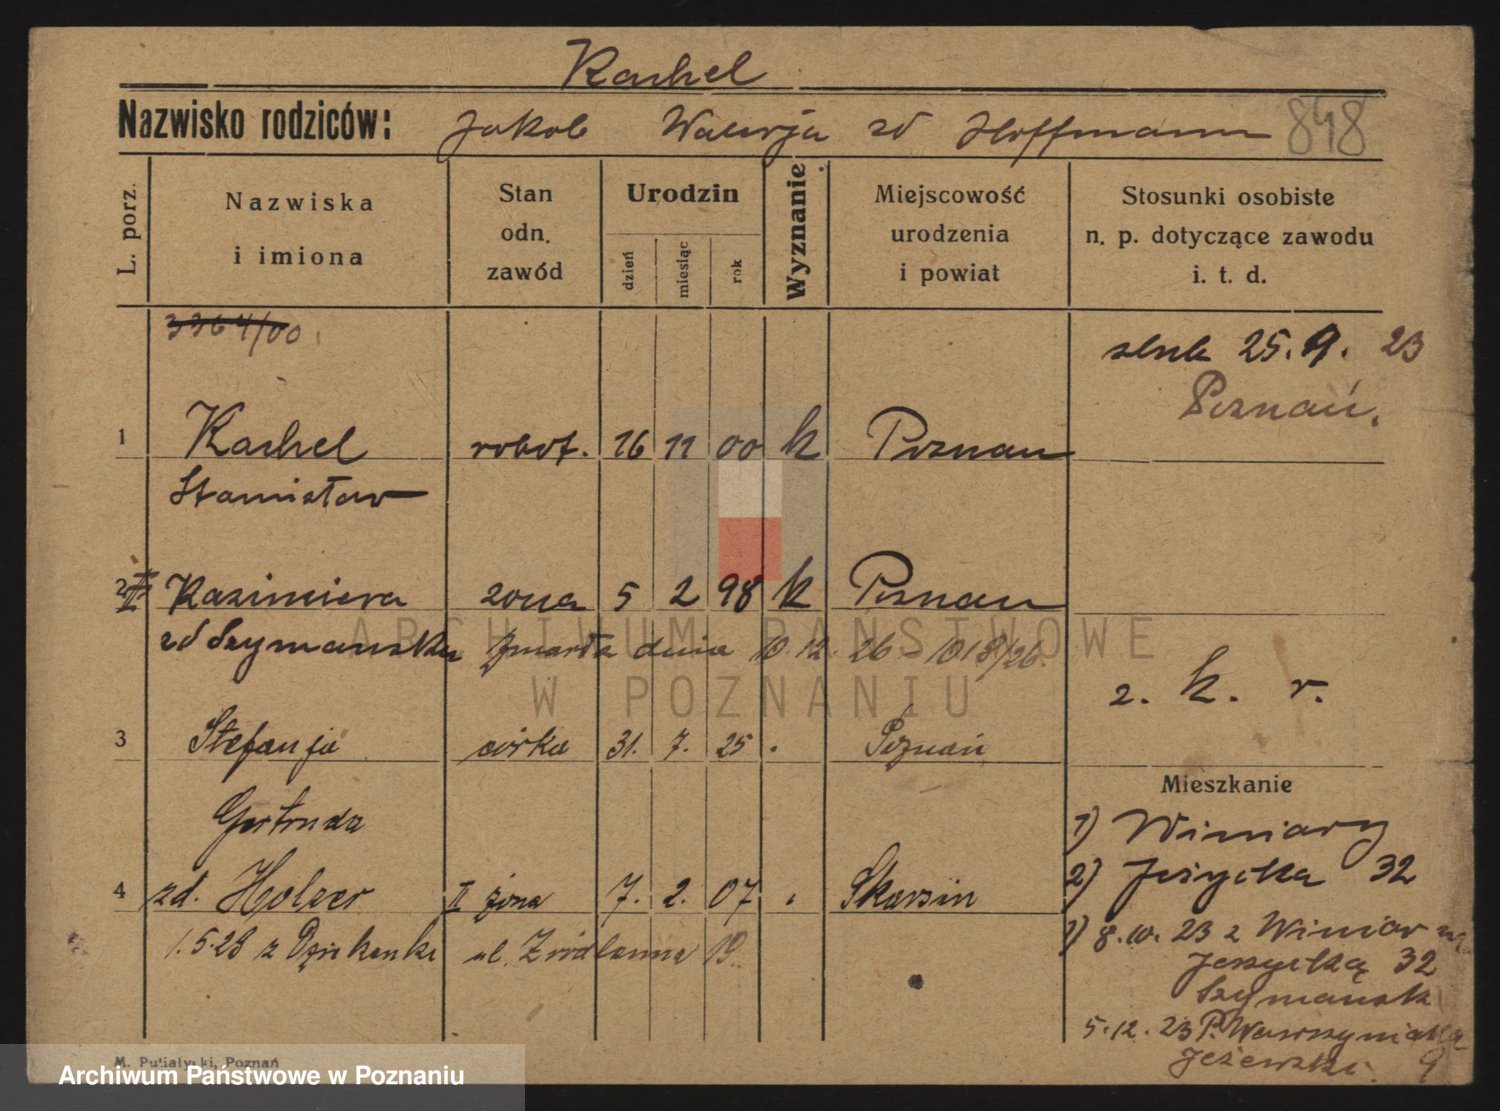 Kachel
Nazwisko rodziców: Jakob Walerja zd Hoffmann 898
L. porz.
Nazwiska i imiona
Stan odn. zawód
Urodzin
dzień miesiąc rok
Wyznanie
Miejscowość urodzenia i powiat
Stosunki osobiste n. p. dotyczące zawodu i. t. d.
3364/00
25. 9. 23
Poznań.
1 Kachel robot. 16 11 00 k Poznan
Stanisław
2 II Kazimiera zona 5 2 98 k Poznan
zd Szymanska zmarła dnia 10. 12. 26 - 1018/26.
z. k. r.
3 Stefanja córka 31. 7. 25 Poznań
Mieszkanie
Gertruda
1) Winiary
4 zd. Holzer II żona 7. 2. 07 Skarszin
2) Jeżycka 32
1.5.28 z ul. 19.
1) 8. 10. 23 z Winiar na
Jeżycką 32
Szymańsk
5. 12. 23 P. Wawrzyniaka
9
M. Putiatycki, Poznań
ARCHIWUM PAŃSTWOWE
W POZNANIU
Archiwum Państwowe w Poznaniu